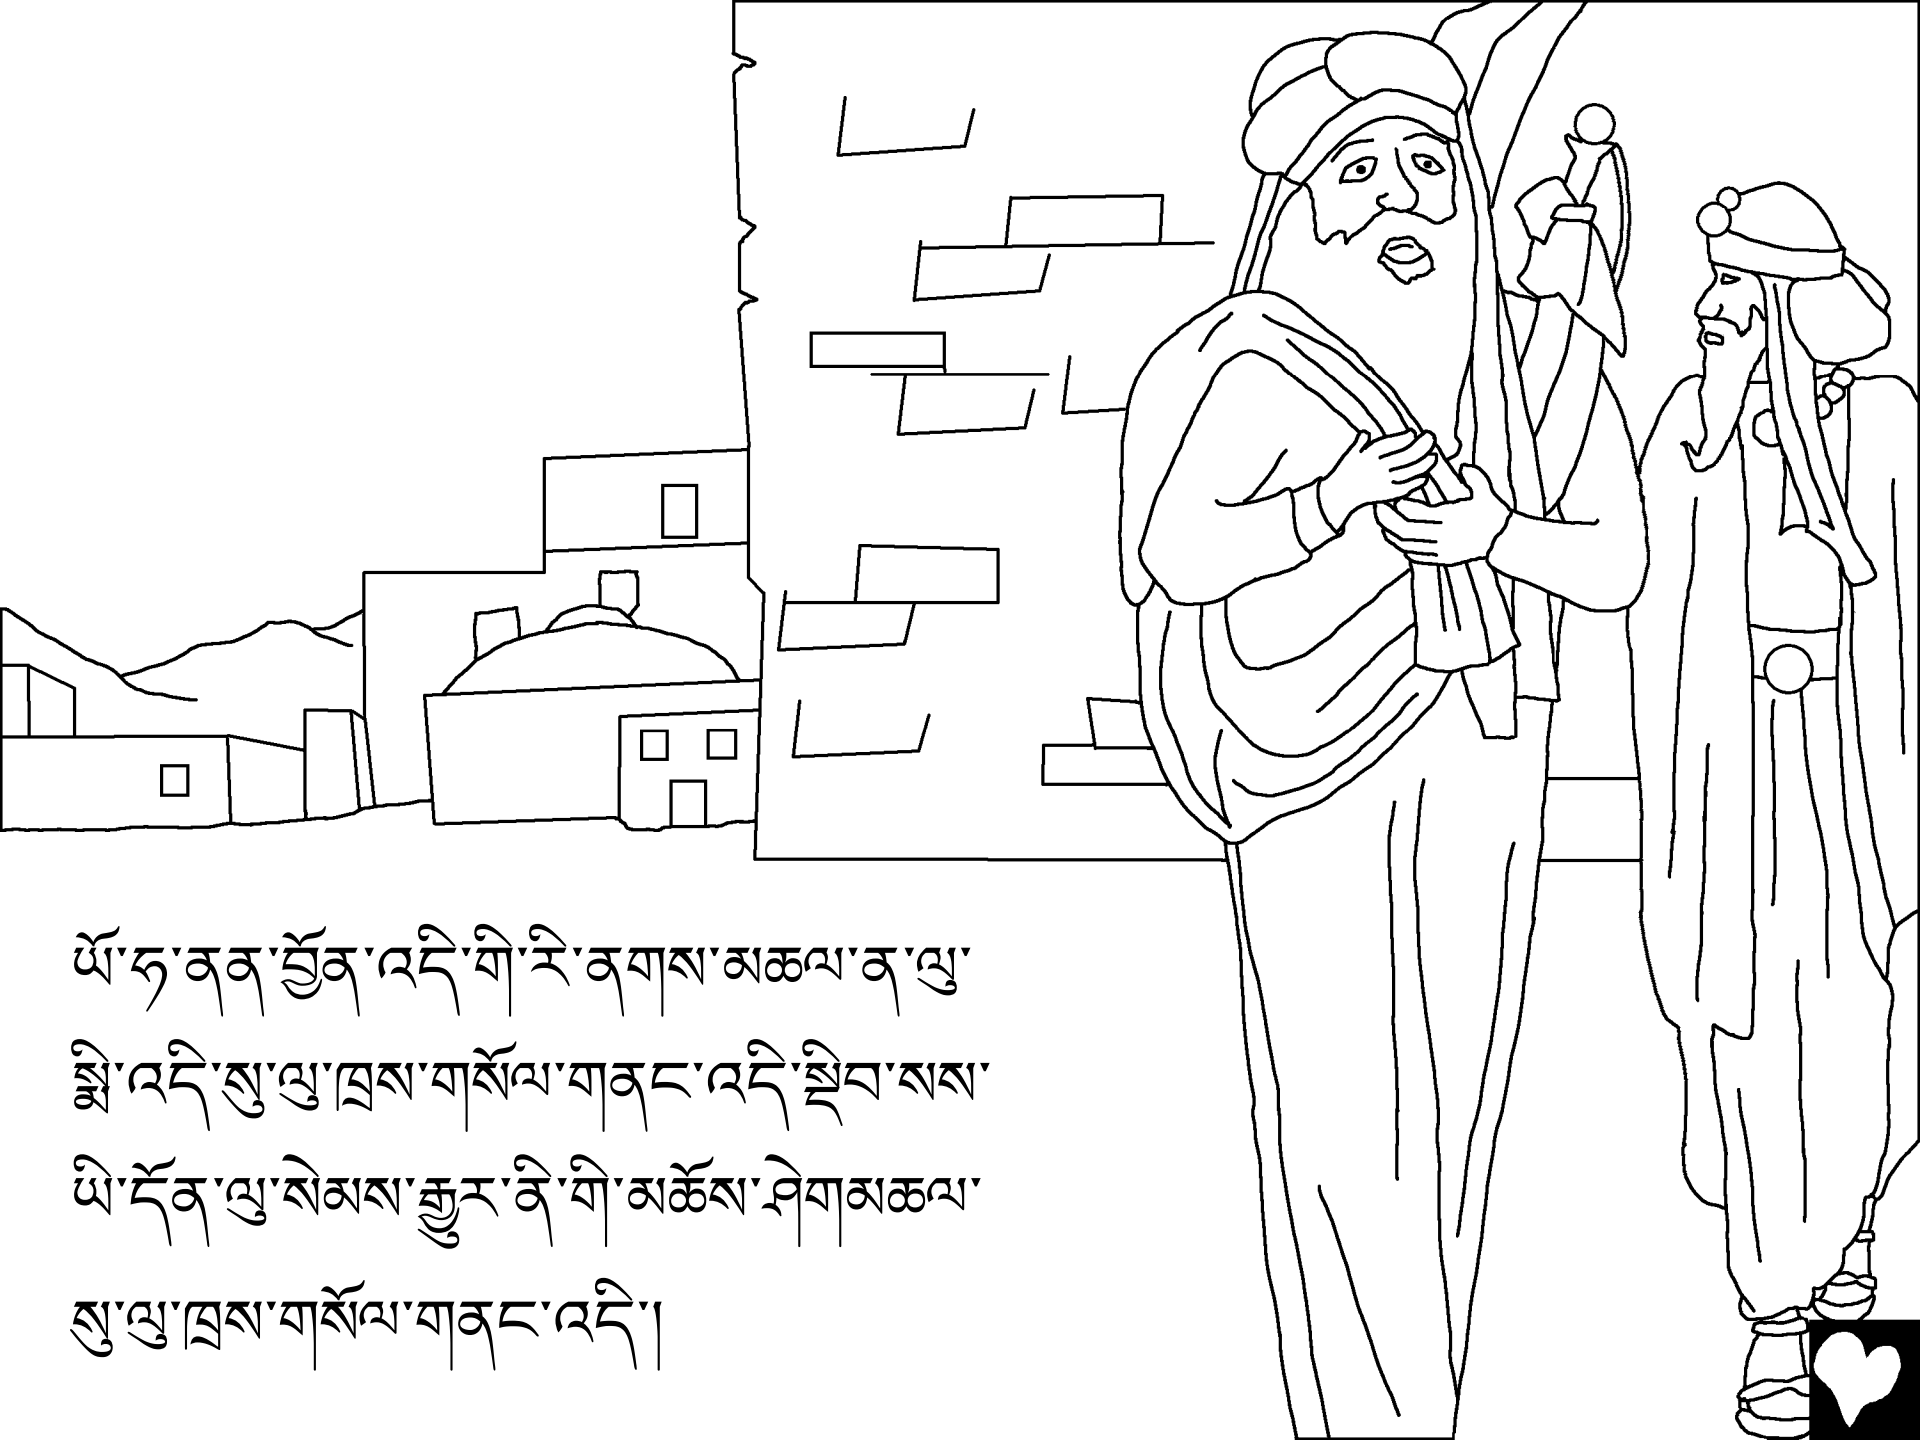 ཡོ་ཧ་ནན་བྱོན་འདི་གི་རི་ནགས་མཆལ་ན་ལུ་
སྨི་འདི་སུ་ལུ་ཁྲས་གསོལ་གནང་འདི་སྡིབ་སས་
ཡི་དོན་ལུ་སེམས་རྒྱུར་ནི་གི་མཆོས་ཤེགམཆལ་
སུ་ལུ་ཁྲས་གསོལ་གནང་འདི་།